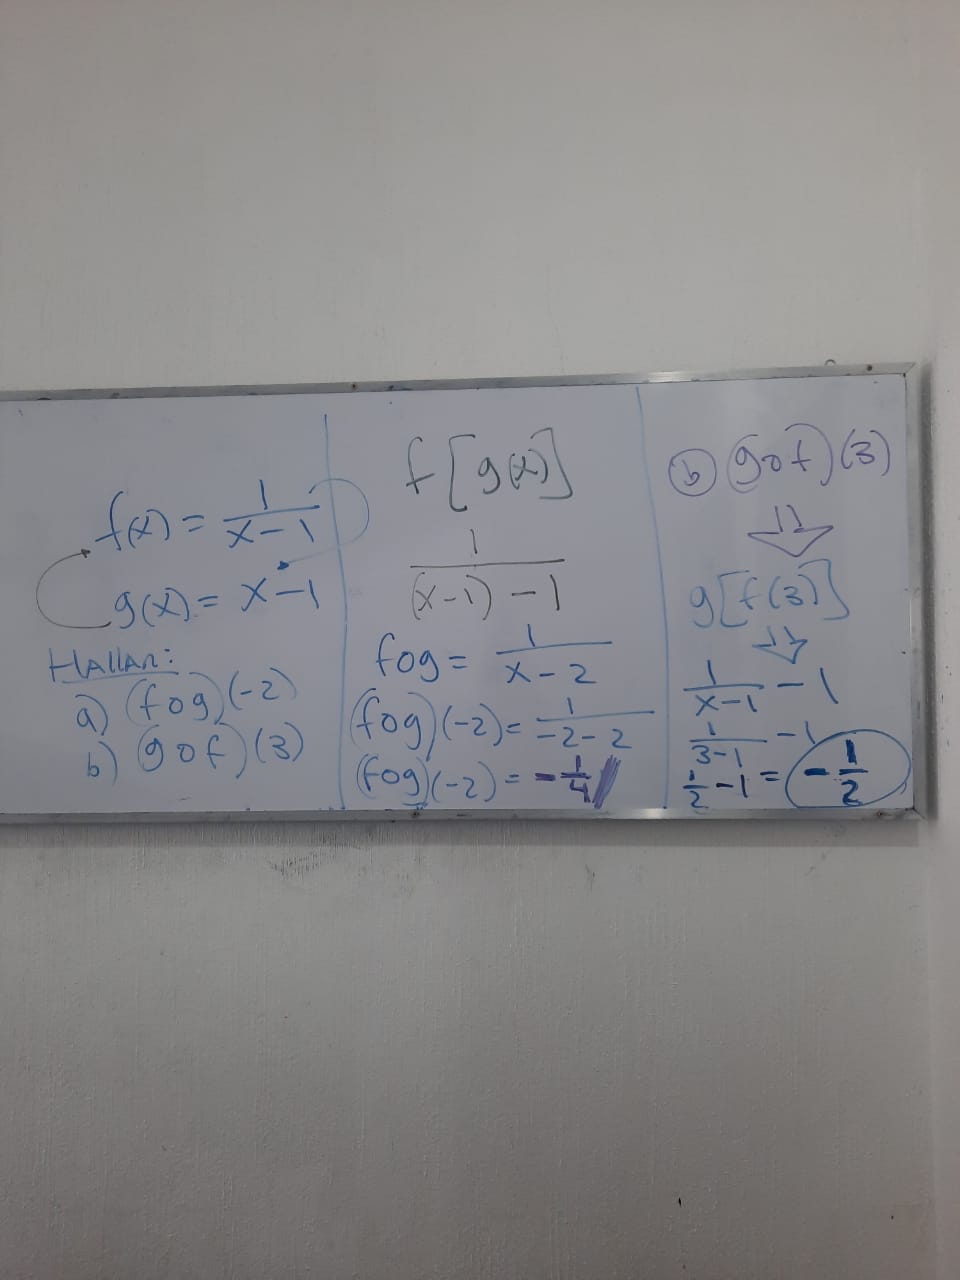 f(x) = 1/(x-1)
g(x) = x-1
HALLAR:
a) (fog)(-2)
b) (gof)(3)
f[g(x)]
1/((x-1)-1)
fog = 1/(x-2)
(fog)(-2) = 1/(-2-2)
(fog)(-2) = -1/4
b (gof)(3)
g[f(3)]
1/(x-1) - 1
1/(3-1) - 1
1/2 - 1 = -1/2